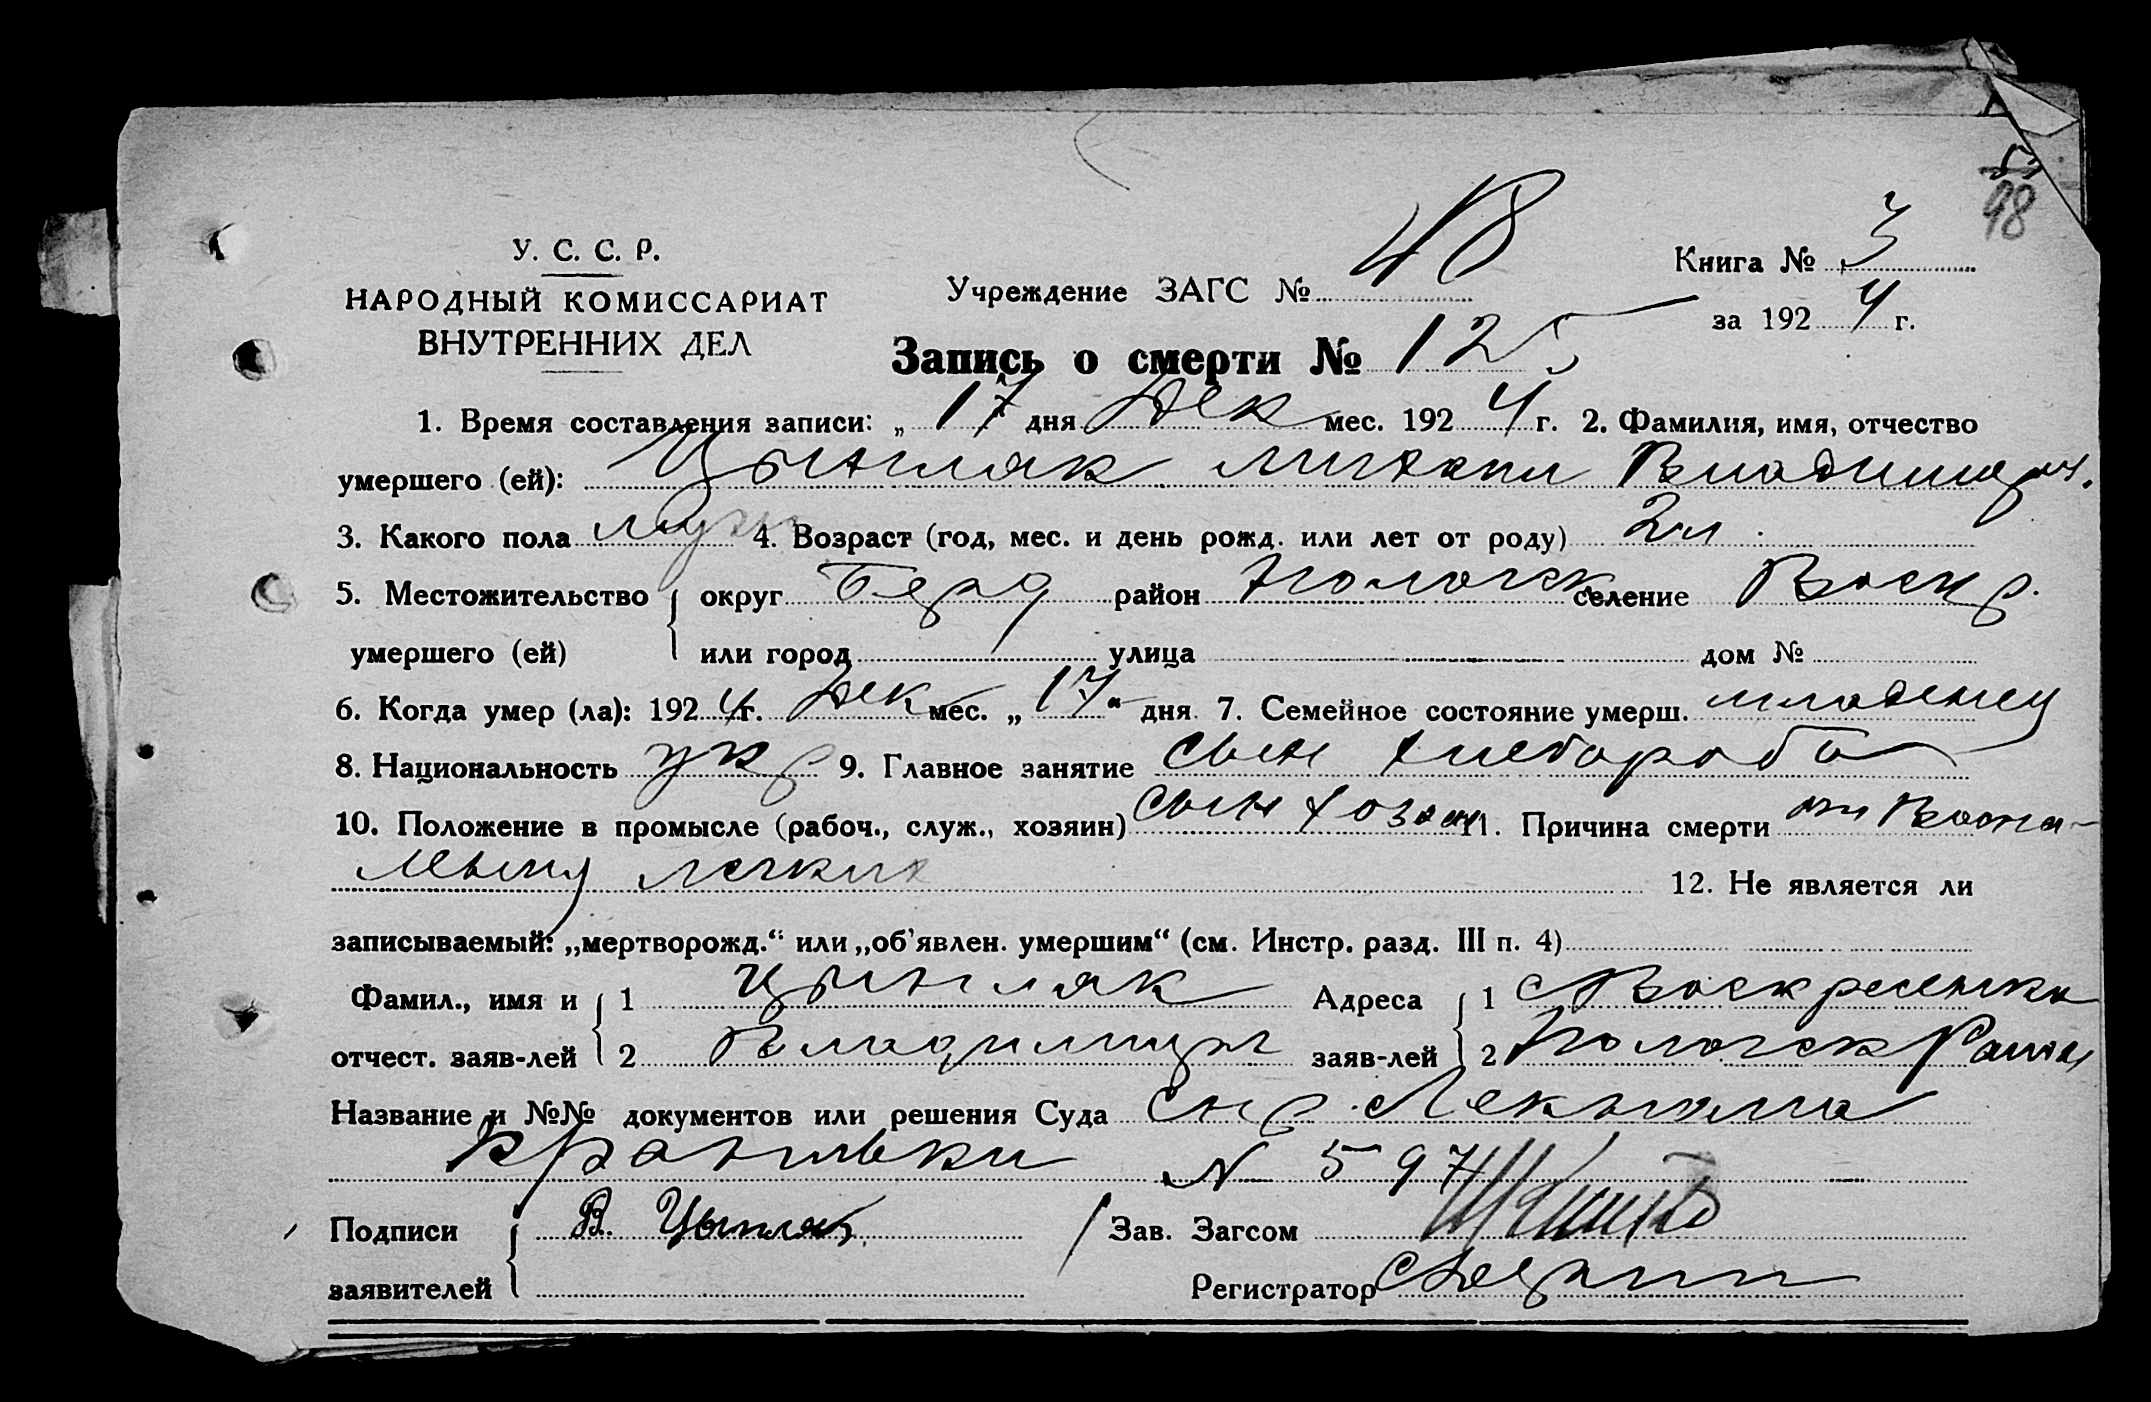 98
У. С. С. Р.
НАРОДНЫЙ КОМИССАРИАТ
ВНУТРЕННИХ ДЕЛ
Учреждение ЗАГС № 48
Книга № 3
за 1924 г.
Запись о смерти № 125
1. Время составления записи: „17 дня Дек мес. 1924 г. 2. Фамилия, имя, отчество
умершего (ей): Цыпляк Михаил Владимир
3. Какого пола муж 4. Возраст (год, мес. и день рожд. или лет от роду) 2 л
5. Местожительство округ Берд район Пологск селение Воскр.
умершего (ей) или город улица дом №
6. Когда умер (ла): 1924 г. Дек мес. „17“ дня 7. Семейное состояние умерш. младенец
8. Национальность укр 9. Главное занятие сын хлебороба
10. Положение в промысле (рабоч., служ., хозяин) сын хозяи 11. Причина смерти от Воспа-
легких 12. Не является ли
записываемый: „мертворожд.“ или „об'явлен. умершим“ (см. Инстр. разд. III п. 4)
Фамил., имя и 1 Цыпляк Адреса 1 с Воскресенка
отчест. заяв-лей 2 Владимир заяв-лей 2 Пологск Района
Название и №№ документов или решения Суда
N 597
Подписи В. Цыпляк Зав. Загсом
заявителей Регистратор